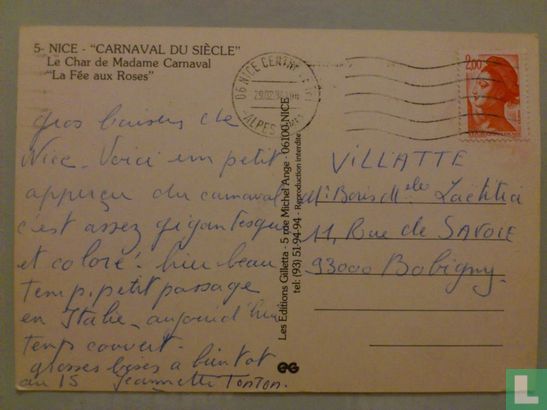 5- NICE - "CARNAVAL DU SIÈCLE"
Le Char de Madame Carnaval
"La Fée aux Roses"
06 NICE CENTRE
ALPES
2,00
gros baisers de
Nice. Voici un petit
apperçu du carnaval
c'est assez gigantesque
et coloré. hier beau
temp. petit passage
en Italie - aujourd'hui
temps couvert.
grosses bises à bientot
au 15 Jeannette Tonton.
Les Editions Gilletta - 5 rue Michel Ange - 06100 NICE
tel: (93) 51-94-94 - Reproduction interdite
VILLATTE
Mr Boris Mlle Laëtitia
11, Rue de SAVOIE
93000 Bobigny.
EG
catawiki